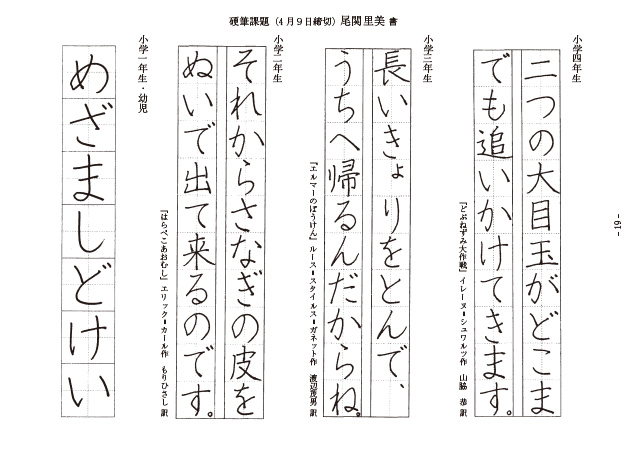 硬筆課題（4月9日締切）尾関里美 書
小学四年生
二つの大目玉がどこま
でも追いかけてきます。
『どぶねずみ大作戦』イレーヌ＝シュワルツ作　山脇 恭 訳
小学三年生
長いきょりをとんで、
うちへ帰るんだからね。
『エルマーのぼうけん』ルース＝スタイルス＝ガネット作　渡辺茂男 訳
小学二年生
それからさなぎの皮を
ぬいで出て来るのです。
『はらぺこあおむし』エリック＝カール作　もりひさし 訳
小学一年生・幼児
めざましどけい
- 19 -